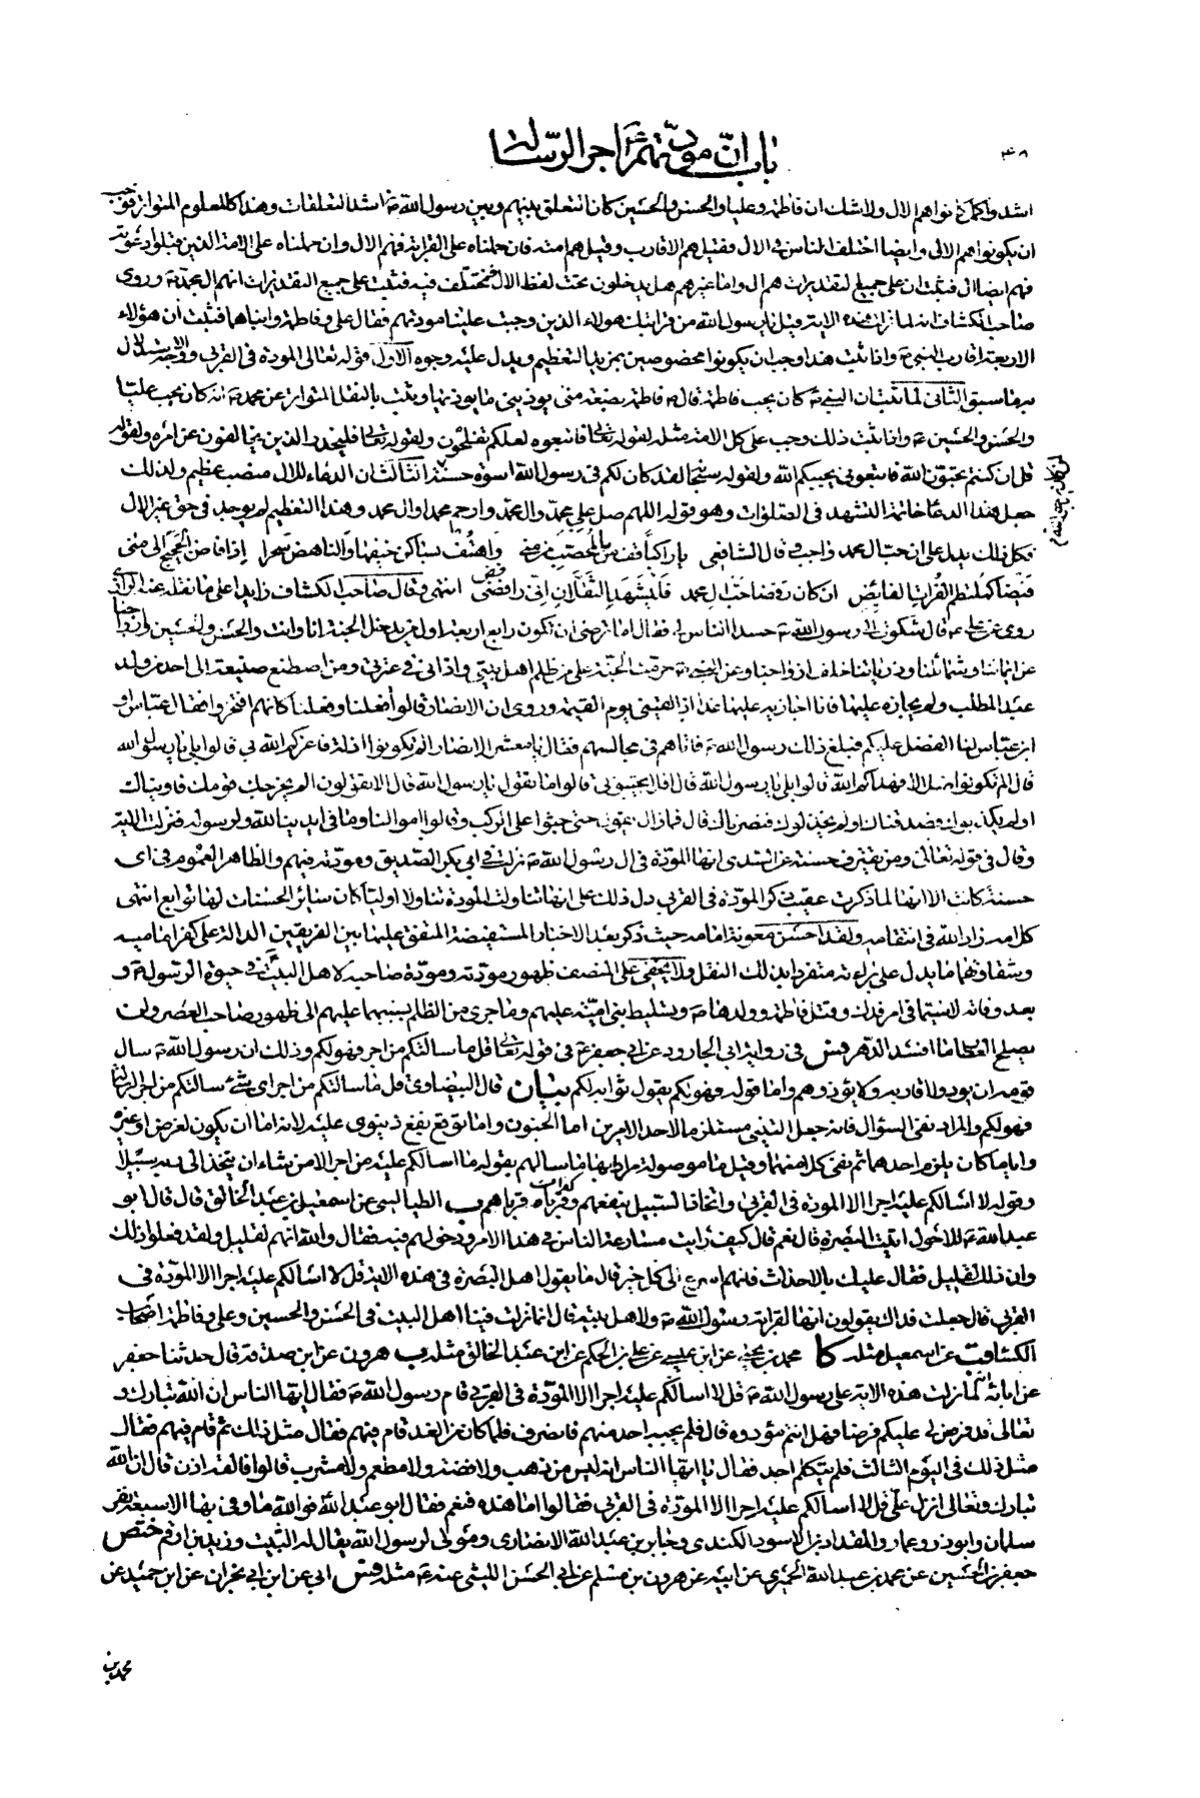 ٣٤٨
باب انّ مودّتهم اجر الرّسالة
اشد واكمل كانوا هم الال ولا شك ان فاطمة وعليا والحسن والحسين كان التعلق بينهم وبين رسول الله ص اشد التعلقات وهذا كالمعلوم المتواتر فوجب
ان يكونوا هم الال وايضا اختلف الناس في الال فقيل هم الاقارب وقيل هم امته فان حملناه على القرابة فهم الال وان حملناه على الامة الذين قبلوا دعوته
فهم ايضا ال فثبت ان على جميع التقديرات هم ال واما غيرهم هل يدخلون تحت لفظ الال فمختلف فيه فثبت على جميع التقديرات انهم ال محمد ص وروى
صاحب الكشاف انه لما نزلت هذه الاية قيل يا رسول الله من قرابتك هؤلاء الذين وجبت علينا مودتهم فقال علي وفاطمة وابناهما فثبت ان هؤلاء
الاربعة اقارب النبي ص واذا ثبت هذا وجب ان يكونوا مخصوصين بمزيد التعظيم ويدل عليه وجوه الاول قوله تعالى الا المودة في القربى ووجه الاستدلال
به ما سبق الثاني لما ثبت ان النبي ص كان يحب فاطمة قال ص فاطمة بضعة مني يوذيني ما يوذيها وثبت بالنقل المتواتر عن محمد ص انه كان يحب عليا
والحسن والحسين ع واذا ثبت ذلك وجب على كل الامة مثله لقوله تعالى فاتبعوه لعلكم تفلحون ولقوله تعالى فليحذر الذين يخالفون عن امره ولقوله
قل ان كنتم تحبون الله فاتبعوني يحببكم الله ولقوله سبحانه لقد كان لكم في رسول الله اسوة حسنة الثالث ان الدعاء للال منصب عظيم ولذلك
جعل هذا الدعا خاتمة التشهد في الصلوات وهو قوله اللهم صل على محمد وال محمد وارحم محمدا وال محمد وهذا التعظيم لم يوجد في حق غير الال
فكل ذلك يدل على ان حب ال محمد واجب وقال الشافعي يا راكبا قف بالمحصب من منى واهتف بساكن خيفها والناهض سحرا اذا فاض الحجيج الى منى
فيضا كملتطم الفرات الفائض ان كان رفضا حب ال محمد فليشهد الثقلان اني رافضي انتهى وقال صاحب الكشاف زايدا على ما نقله عنه الرازي
روي عن علي ع قال شكوت الى رسول الله ص حسد الناس لي فقال اما ترضى ان تكون رابع اربعة اول من يدخل الجنة انا وانت والحسن والحسين وازواجنا
عن ايماننا وشمائلنا وذرياتنا خلف ازواجنا وعن النبي ص حرمت الجنة على من ظلم اهل بيتي واذاني في عترتي ومن اصطنع صنيعة الى احد من ولد
عبد المطلب ولم يجازه عليها فانا اجازيه عليها غدا اذا لقيني يوم القيمة وروي ان الانصار قالوا فعلنا وفعلنا كانهم افتخروا فقال عباس او
ابن عباس لنا الفضل عليكم فبلغ ذلك رسول الله ص فاتاهم في مجالسهم فقال يا معشر الانصار الم تكونوا اذلة فاعزكم الله بي قالوا بلى يا رسول الله
قال الم تكونوا ضلالا فهداكم الله قالوا بلى يا رسول الله قال افلا تجيبوني قالوا ما نقول يا رسول الله قال الا تقولون الم يخرجك قومك فاويناك
اولم يكذبوك فصدقناك اولم يخذلوك فنصرناك قال فما زال يقول حتى جثوا على الركب وقالوا اموالنا وما في ايدينا لله ولرسوله فنزلت الاية
وقال في قوله تعالى ومن يقترف حسنة عن السدي انها المودة في ال رسول الله ص نزلت في ابي بكر الصديق ومودته فيهم والظاهر العموم في اي
حسنة كانت الا انها لما ذكرت عقيب ذكر المودة في القربى دل ذلك على انها تناولت المودة تناولا اوليا كان سائر الحسنات لها توابع انتهى
كلامه زاد الله في انتقامه ولقد احسن معونة امامه حيث ذكر بعد الاخبار المستفيضة المتفق عليها بين الفريقين الدالة على كفر اماميه
وشقاوتهما ما يدل على برائته متفردا بذلك النقل ولا يخفى على المنصف ظهور مودته ومودة صاحبه لاهل البيت ع في حيوة الرسول ص و
بعد وفاته لا سيما في امر فدك وقتل فاطمة وولدها ص وتسليط بني امية عليهم وما جرى من الظلم بسببهما عليهم الى ظهور صاحب العصر ولن
يصلح العطار ما افسد الدهر فس في رواية ابي الجارود عن ابي جعفر ع في قوله تعالى قل ما سالتكم من اجر فهو لكم وذلك ان رسول الله ص سال
قومه ان يودوا اقاربه ولا يؤذوهم واما قوله فهو لكم يقول ثوابه لكم بيان قال البيضاوي قل ما سالتكم من اجر اي شئ سالتكم من اجر الرسالة
فهو لكم والمراد نفي السؤال فانه جعل التنبي مستلزما لاحد الامرين اما الجنون واما توقع نفع دنيوي عليه لانه اما ان يكون لغرض او غيره
وايا ما كان يلزم احدهما ثم نفى كلا منهما وقيل ما موصولة مراد بها ما سالهم بقوله ما اسالكم عليه من اجر الا من شاء ان يتخذ الى ربه سبيلا
وقوله لا اسالكم عليه اجرا الا المودة في القربى واتخاذ السبيل ينفعهم وقرباه قرباهم ب الطيالسي عن اسمعيل بن عبد الخالق قال قال ابو
عبد الله ع للاحول اتيت البصرة قال نعم قال كيف رايت مسارعة الناس في هذا الامر ودخولهم فيه فقال والله انهم لقليل ولقد فعلوا ذلك
وان ذلك لقليل فقال عليك بالاحداث فانهم اسرع الى كل خير قال ما يقول اهل البصرة في هذه الاية قل لا اسالكم عليه اجرا الا المودة في
القربى قال جعلت فداك يقولون انها لقرابة رسول الله ص ولاهل بيته قال انما نزلت فينا اهل البيت في الحسن والحسين وعلي وفاطمة اصحاب
الكساء ب عن اسمعيل مثله كا محمد بن يحيى عن ابن عيسى عن علي بن الحكم عن ابن عبد الخالق مثله ب هرون عن ابن صدقة قال حدثنا جعفر
عن ابائه ع لما نزلت هذه الاية على رسول الله ص قل لا اسالكم عليه اجرا الا المودة في القربى قام رسول الله ص فقال ايها الناس ان الله تبارك و
تعالى قد فرض لي عليكم فرضا فهل انتم مؤدوه قال فلم يجبه احد منهم فانصرف فلما كان من الغد قام فيهم فقال مثل ذلك ثم قام فيهم فقال
مثل ذلك في اليوم الثالث فلم يتكلم احد فقال يا ايها الناس انه ليس من ذهب ولا فضة ولا مطعم ولا مشرب قالوا فالقه اذن قال ان الله
تبارك وتعالى انزل علي قل لا اسالكم عليه اجرا الا المودة في القربى فقالوا اما هذه فنعم فقال ابو عبد الله فوالله ما وفى بها الا سبعة نفر
سلمان وابوذر وعمار والمقداد بن الاسود الكندي وجابر بن عبد الله الانصاري ومولى لرسول الله يقال له الثبيت وزيد بن ارقم ختص
جعفر بن الحسين عن محمد بن عبد الله الحميري عن ابيه عن هرون بن مسلم عن ابي الحسن الليثي عنه ع مثله فس ابي عن ابن ابي نجران عن ابن حميد عن
محمد بن